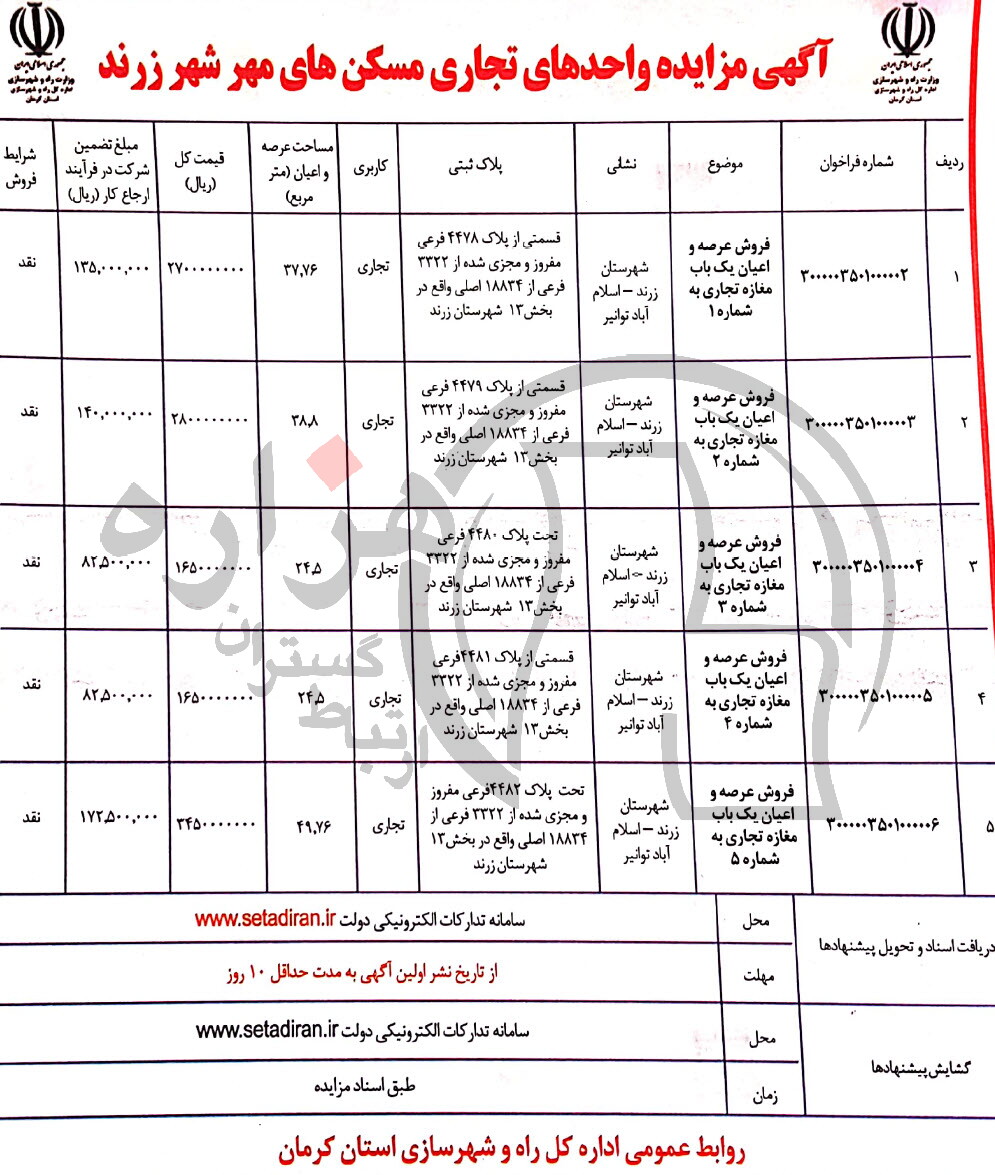 جمهوری اسلامی ایران
وزارت راه و شهرسازی
اداره کل راه و شهرسازی
استان کرمان
آگهی مزایده واحدهای تجاری مسکن های مهر شهر زرند
جمهوری اسلامی ایران
وزارت راه و شهرسازی
اداره کل راه و شهرسازی
استان کرمان
ردیف
شماره فراخوان
موضوع
نشانی
پلاک ثبتی
کاربری
مساحت عرصه
و اعیان (متر
مربع)
قیمت کل
(ریال)
مبلغ تضمین
شرکت در فرآیند
ارجاع کار (ریال)
شرایط
فروش
۱
۳۰۰۰۰۰۳۵۰۱۰۰۰۰۰۲
فروش عرصه و
اعیان یک باب
مغازه تجاری به
شماره ۱
شهرستان
زرند – اسلام
آباد توانیر
قسمتی از پلاک ۴۴۷۸ فرعی
مفروز و مجزی شده از ۳۳۲۲
فرعی از ۱۸۸۳۴ اصلی واقع در
بخش۱۳ شهرستان زرند
تجاری
۳۷,۷۶
۲۷۰۰۰۰۰۰۰۰
۱۳۵,۰۰۰,۰۰۰
نقد
۲
۳۰۰۰۰۰۳۵۰۱۰۰۰۰۰۳
فروش عرصه و
اعیان یک باب
مغازه تجاری به
شماره ۲
شهرستان
زرند – اسلام
آباد توانیر
قسمتی از پلاک ۴۴۷۹ فرعی
مفروز و مجزی شده از ۳۳۲۲
فرعی از ۱۸۸۳۴ اصلی واقع در
بخش۱۳ شهرستان زرند
تجاری
۳۸,۸
۲۸۰۰۰۰۰۰۰۰
۱۴۰,۰۰۰,۰۰۰
نقد
۳
۳۰۰۰۰۰۳۵۰۱۰۰۰۰۰۴
فروش عرصه و
اعیان یک باب
مغازه تجاری به
شماره ۳
شهرستان
زرند – اسلام
آباد توانیر
تحت پلاک ۴۴۸۰ فرعی
مفروز و مجزی شده از ۳۳۲۲
فرعی از ۱۸۸۳۴ اصلی واقع در
بخش۱۳ شهرستان زرند
تجاری
۲۴,۵
۱۶۵۰۰۰۰۰۰۰
۸۲,۵۰۰,۰۰۰
نقد
۴
۳۰۰۰۰۰۳۵۰۱۰۰۰۰۰۵
فروش عرصه و
اعیان یک باب
مغازه تجاری به
شماره ۴
شهرستان
زرند – اسلام
آباد توانیر
قسمتی از پلاک ۴۴۸۱فرعی
مفروز و مجزی شده از ۳۳۲۲
فرعی از ۱۸۸۳۴ اصلی واقع در
بخش۱۳ شهرستان زرند
تجاری
۲۴,۵
۱۶۵۰۰۰۰۰۰۰
۸۲,۵۰۰,۰۰۰
نقد
۵
۳۰۰۰۰۰۳۵۰۱۰۰۰۰۰۶
فروش عرصه و
اعیان یک باب
مغازه تجاری به
شماره ۵
شهرستان
زرند – اسلام
آباد توانیر
تحت پلاک ۴۴۸۲فرعی مفروز
و مجزی شده از ۳۳۲۲ فرعی از
۱۸۸۳۴ اصلی واقع در بخش۱۳
شهرستان زرند
تجاری
۴۹,۷۶
۳۴۵۰۰۰۰۰۰۰
۱۷۲,۵۰۰,۰۰۰
نقد
هزاره
گستران
ارتباط
دریافت اسناد و تحویل پیشنهادها
محل
سامانه تدارکات الکترونیکی دولت www.setadiran.ir
مهلت
از تاریخ نشر اولین آگهی به مدت حداقل ۱۰ روز
گشایش پیشنهادها
محل
سامانه تدارکات الکترونیکی دولت www.setadiran.ir
زمان
طبق اسناد مزایده
روابط عمومی اداره کل راه و شهرسازی استان کرمان